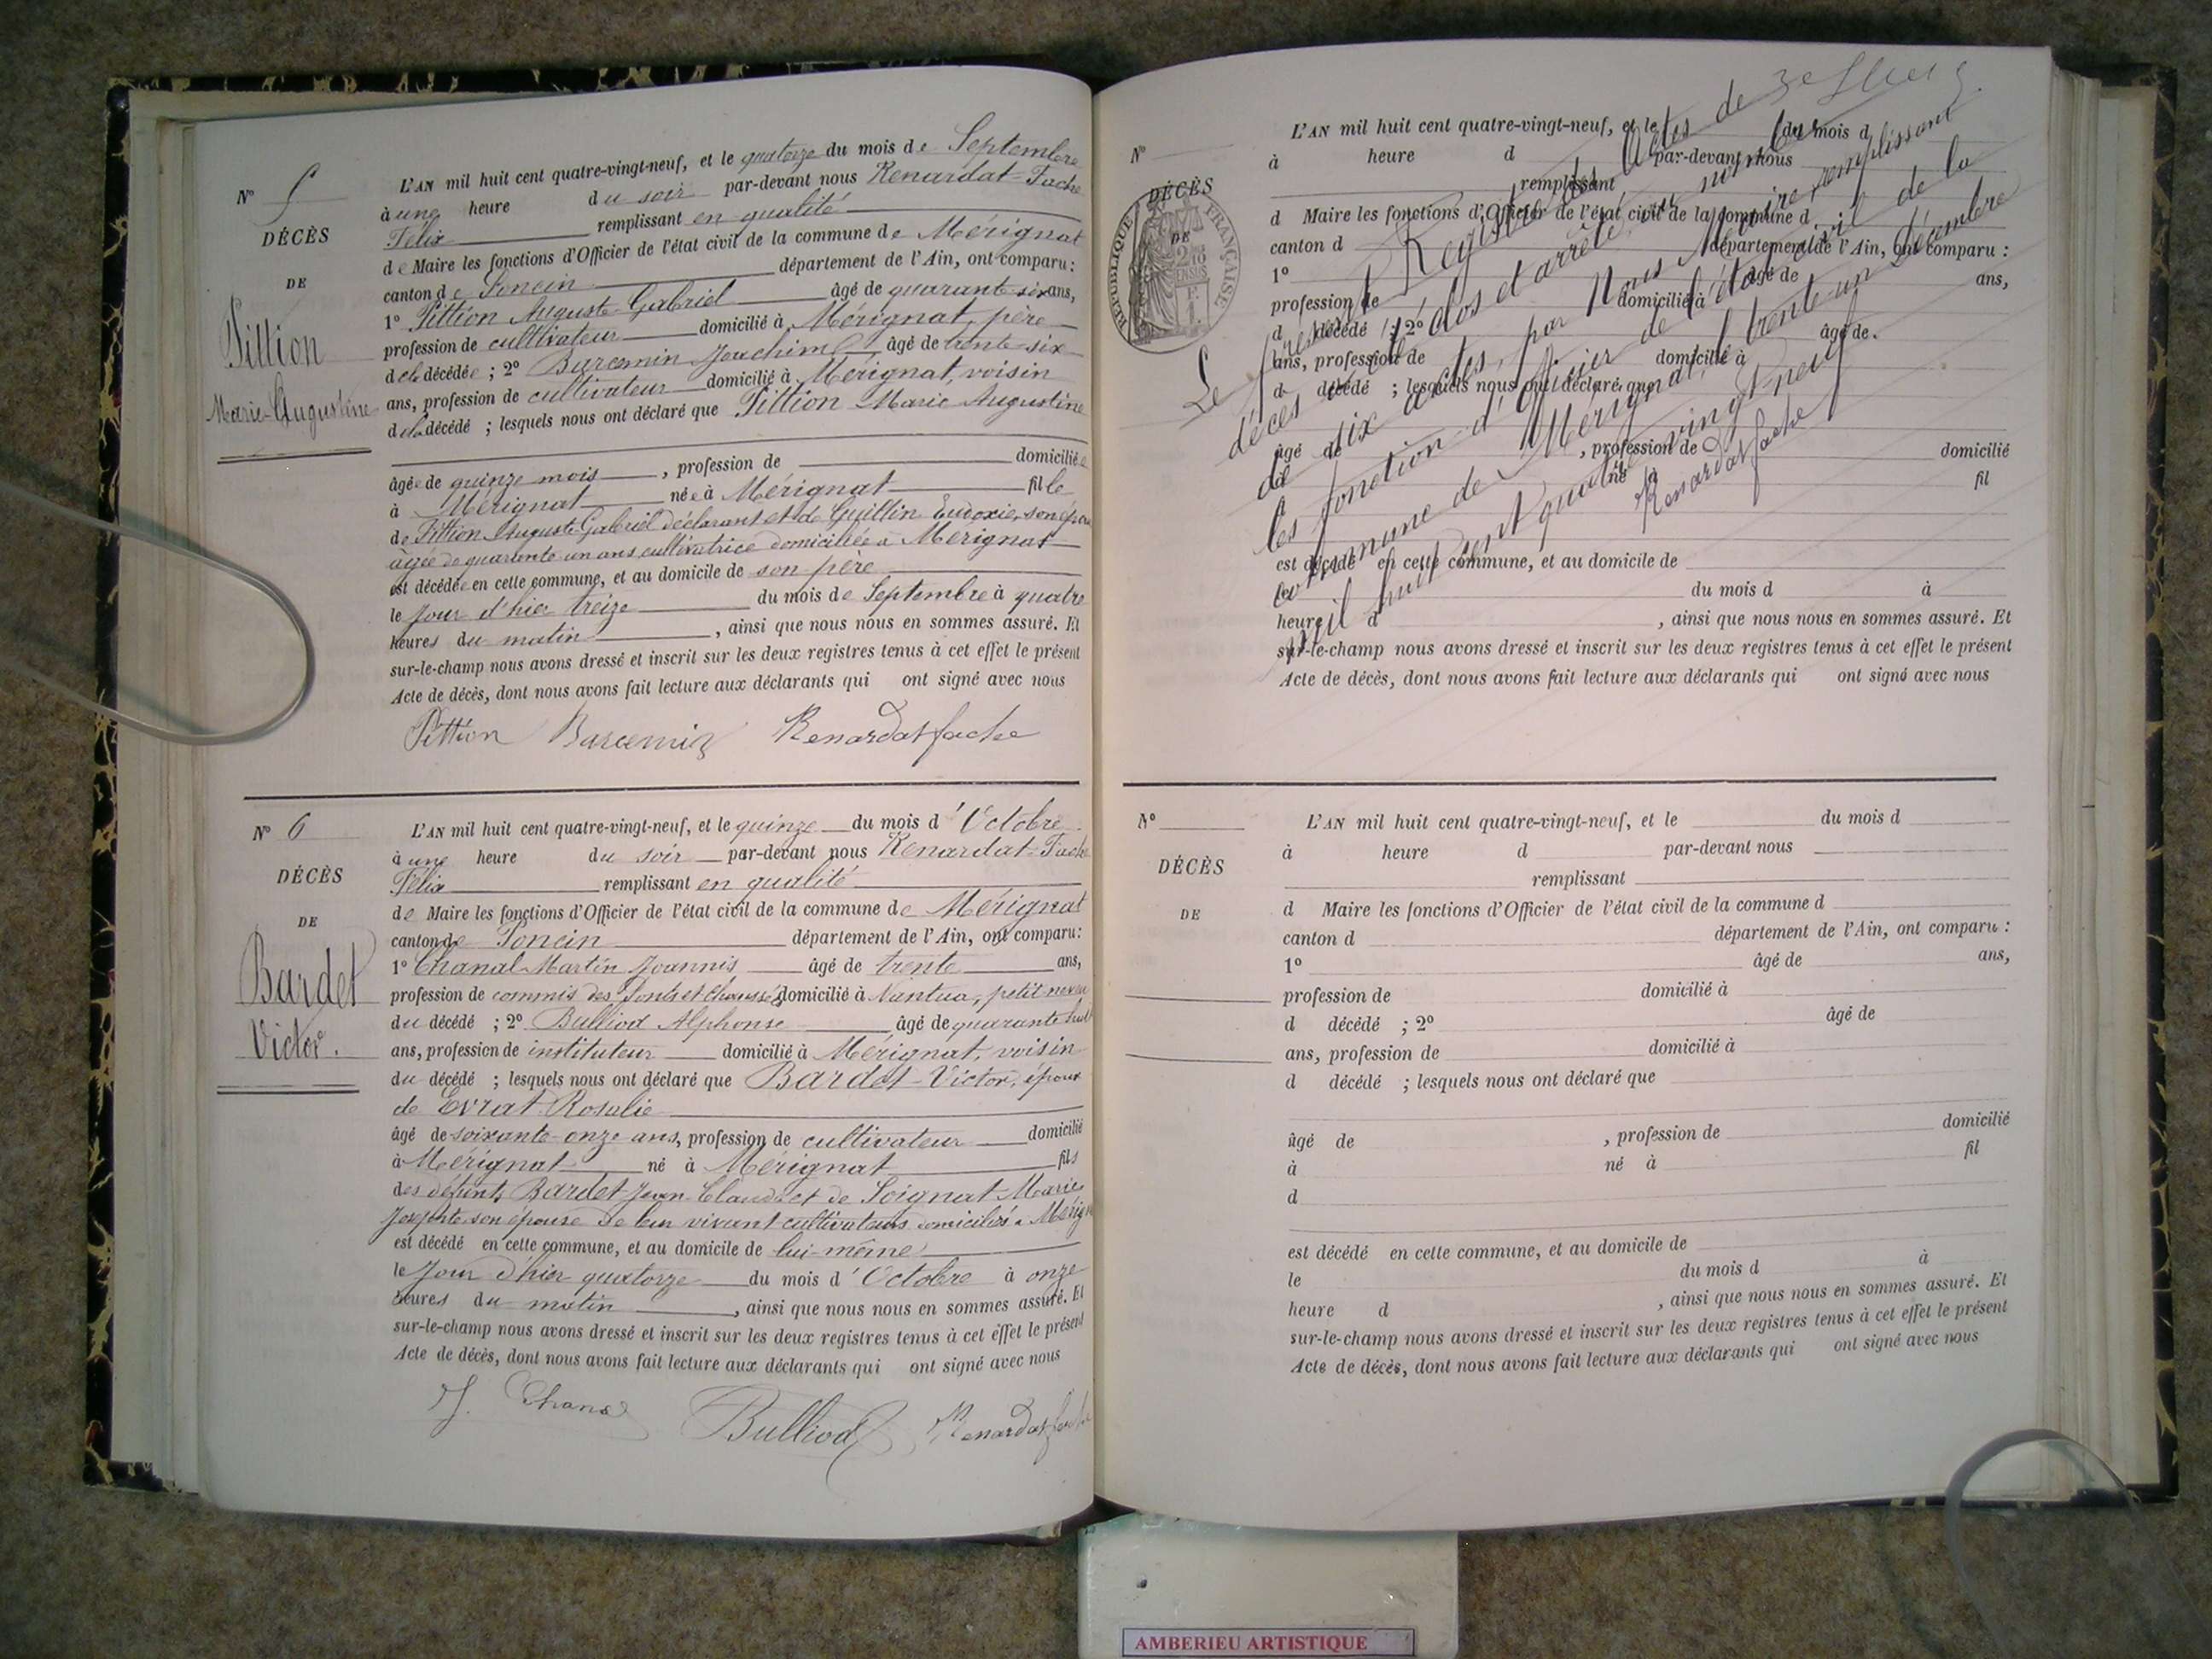 N° 5
DÉCÈS
DE
Pittion
Marie-Augustine
L'AN mil huit cent quatre-vingt-neuf, et le quatorze du mois de Septembre
à une heure du soir par-devant nous Renardat-Fache
Félix remplissant en qualité
de Maire les fonctions d'Officier de l'état civil de la commune de Mérignat
canton de Poncin département de l'Ain, ont comparu :
1° Pittion Auguste Gabriel âgé de quarant six ans,
profession de cultivateur domicilié à Mérignat, père
de la décédée ; 2° Burcemin Joachim âgé de trente-six
ans, profession de cultivateur domicilié à Mérignat, voisin
de la décédé ; lesquels nous ont déclaré que Pittion Marie Augustine
âgée de quinze mois, profession de domiciliée
à Mérignat née à Mérignat fille
de Pittion Auguste Gabriel déclarant et de Guillin Eudoxie, son
âgée de quarante un ans cultivatrice domiciliée à Mérignat
est décédée en cette commune, et au domicile de son père
le jour d'hier treize du mois de Septembre à quatre
heures du matin, ainsi que nous nous en sommes assuré. Et
sur-le-champ nous avons dressé et inscrit sur les deux registres tenus à cet effet le présent
Acte de décès, dont nous avons fait lecture aux déclarants qui ont signé avec nous
Pittion Burcemin Renardat fache
N° 6
DÉCÈS
DE
Bardet
Victor.
L'AN mil huit cent quatre-vingt-neuf, et le quinze du mois d'Octobre
à une heure du soir par-devant nous Renardat-Fache
Félix remplissant en qualité
de Maire les fonctions d'Officier de l'état civil de la commune de Mérignat
canton de Poncin département de l'Ain, ont comparu :
1° Chanal Martin Joannis âgé de trente ans,
profession de commis des Ponts et Chaussées domicilié à Nantua, petit neveu
du décédé ; 2° Bulliod Alphonse âgé de quarante huit
ans, profession de instituteur domicilié à Mérignat, voisin
du décédé ; lesquels nous ont déclaré que Bardet-Victor, époux
de Evrat Rosalie
âgé de soixante-onze ans, profession de cultivateur domicilié
à Mérignat né à Mérignat fils
des défunts Bardet Jean Claude et de Soignat Marie
Josephte son épouse de leur vivant cultivateurs domiciliés à
est décédé en cette commune, et au domicile de lui-même
le jour d'hier quatorze du mois d'Octobre à onze
heures du matin, ainsi que nous nous en sommes assuré. Et
sur-le-champ nous avons dressé et inscrit sur les deux registres tenus à cet effet le présent
Acte de décès, dont nous avons fait lecture aux déclarants qui ont signé avec nous
J. Chanal Bulliod Renardat fache
N°
DÉCÈS
DE
RÉPUBLIQUE FRANÇAISE
L'AN mil huit cent quatre-vingt-neuf, et le du mois d
à heure d par-devant nous
remplissant
d Maire les fonctions d'Officier de l'état civil de la commune d
canton d département de l'Ain, ont comparu :
1° âgé de ans,
profession de domicilié à
d décédé ; 2° âgé de
ans, profession de domicilié à
d décédé ; lesquels nous ont déclaré que
âgé de , profession de domicilié
à né à fil
d
est décédé en cette commune, et au domicile de
le du mois d à
heure d , ainsi que nous nous en sommes assuré. Et
sur-le-champ nous avons dressé et inscrit sur les deux registres tenus à cet effet le présent
Acte de décès, dont nous avons fait lecture aux déclarants qui ont signé avec nous
Le présent Registre des Actes de
décès clos et arrêté, au nombre
de six actes, par Nous Maire, remplissant
les fonction d'Officier de l'état civil de la
commune de Mérignat, trente-un décembre
mil huit cent quatre vingt-neuf
Renardat fache
N°
DÉCÈS
DE
L'AN mil huit cent quatre-vingt-neuf, et le du mois d
à heure d par-devant nous
remplissant
d Maire les fonctions d'Officier de l'état civil de la commune d
canton d département de l'Ain, ont comparu :
1° âgé de ans,
profession de domicilié à
d décédé ; 2° âgé de
ans, profession de domicilié à
d décédé ; lesquels nous ont déclaré que
âgé de , profession de domicilié
à né à fil
d
est décédé en cette commune, et au domicile de
le du mois d à
heure d , ainsi que nous nous en sommes assuré. Et
sur-le-champ nous avons dressé et inscrit sur les deux registres tenus à cet effet le présent
Acte de décès, dont nous avons fait lecture aux déclarants qui ont signé avec nous
AMBERIEU ARTISTIQUE